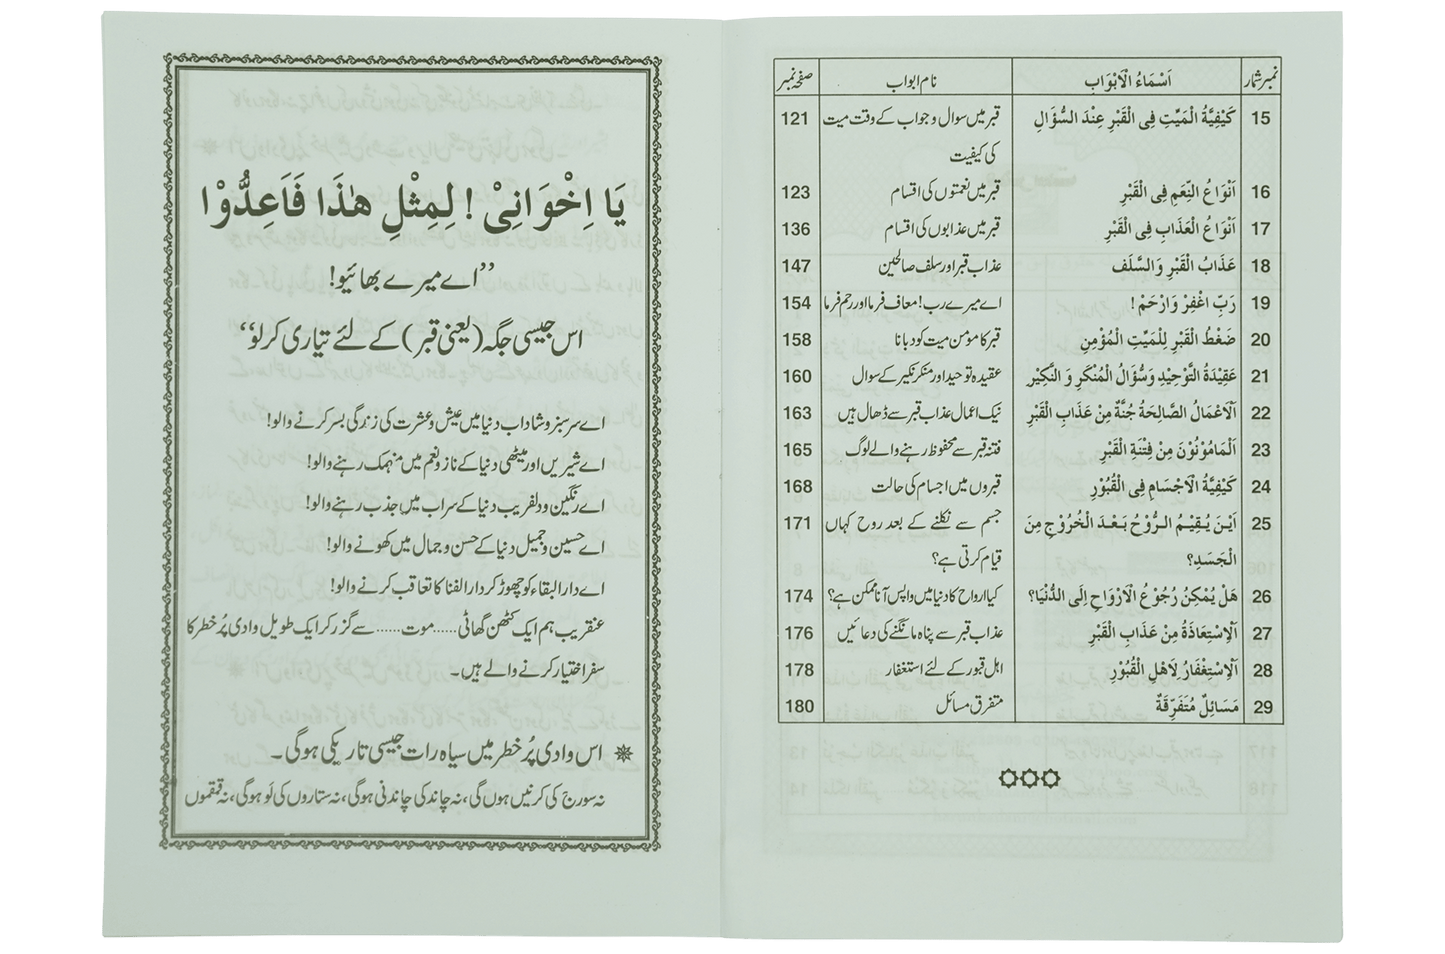 نمبر شمار اَسْمَاءُ الْاَبْوَاب نام ابواب صفحہ نمبر
15 كَيْفِيَّةُ الْمَيِّتِ فِى الْقَبْرِ عِنْدَ السُّؤَالِ قبر میں سوال و جواب کے وقت میت 121
کی کیفیت
16 اَنْوَاعُ النِّعَمِ فِى الْقَبْرِ قبر میں نعمتوں کی اقسام 123
17 اَنْوَاعُ الْعَذَابِ فِى الْقَبْرِ قبر میں عذابوں کی اقسام 136
18 عَذَابُ الْقَبْرِ وَالسَّلَف عذاب قبر اور سلف صالحین 147
19 رَبِّ اغْفِرْ وَارْحَمْ ! اے میرے رب! معاف فرما اور رحم فرما 154
20 ضَغْطُ الْقَبْرِ لِلْمَيِّتِ الْمُؤْمِنِ قبر کا مومن میت کو دبانا 158
21 عَقِيْدَةُ التَّوْحِيْدِ وَسُؤَالُ الْمُنْكَرِ وَ النَّكِيْرِ عقیدہ توحید اور منکر نکیر کے سوال 160
22 اَلْاَعْمَالُ الصَّالِحَةُ جُنَّةٌ مِنْ عَذَابِ الْقَبْرِ نیک اعمال عذاب قبر سے ڈھال ہیں 163
23 اَلْمَامُوْنُوْنَ مِنْ فِتْنَةِ الْقَبْرِ فتنہ قبر سے محفوظ رہنے والے لوگ 165
24 كَيْفِيَّةُ الْاَجْسَامِ فِى الْقُبُوْرِ قبروں میں اجسام کی حالت 168
25 اَيْنَ يُقِيْمُ الرُّوْحُ بَعْدَ الْخُرُوْجِ مِنَ جسم سے نکلنے کے بعد روح کہاں 171
الْجَسَدِ؟ قیام کرتی ہے؟
26 هَلْ يُمْكِنُ رُجُوْعُ الْاَرْوَاحِ اِلَى الدُّنْيَا؟ کیا ارواح کا دنیا میں واپس آنا ممکن ہے؟ 174
27 اَلْاِسْتِعَاذَةُ مِنْ عَذَابِ الْقَبْرِ عذاب قبر سے پناہ مانگنے کی دعائیں 176
28 اَلْاِسْتِغْفَارُ لِاَهْلِ الْقُبُوْرِ اہل قبور کے لئے استغفار 178
29 مَسَائِلُ مُتَفَرِّقَةٌ متفرق مسائل 180
يَا اِخْوَانِىْ ! لِمِثْلِ هٰذَا فَاَعِدُّوْا
”اے میرے بھائیو!
اس جیسی جگہ (یعنی قبر) کے لئے تیاری کرلو“
اے سرسبز و شاداب دنیا میں عیش و عشرت کی زندگی بسر کرنے والو!
اے شیریں اور میٹھی دنیا کے ناز و نعم میں منہمک رہنے والو!
اے رنگین و دلفریب دنیا کے سراب میں جذب رہنے والو!
اے حسین و جمیل دنیا کے حسن و جمال میں کھونے والو!
اے دارالبقاء کو چھوڑ کر دار الفنا کا تعاقب کرنے والو!
عنقریب ہم ایک کٹھن گھاٹی ..... موت ..... سے گزر کر ایک طویل وادی پُر خطر کا
سفر اختیار کرنے والے ہیں۔
❋ اس وادی پُر خطر میں سیاہ رات جیسی تاریکی ہوگی۔
نہ سورج کی کرنیں ہوں گی، نہ چاند کی چاندنی ہوگی، نہ ستاروں کی لَو ہوگی، نہ قمقموں